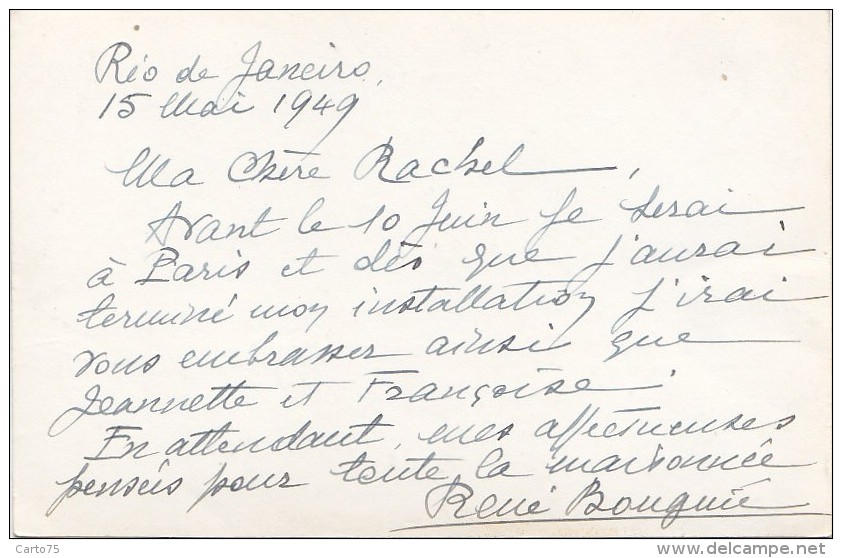 Rio de Janeiro,
15 Mai 1949
Ma Chère Rachel,
Avant le 10 Juin je serai
à Paris et dès que j'aurai
terminé mon installation j'irai
vous embrasser ainsi que
Jeannette et Françoise.
En attendant, mes affectueuses
pensées pour toute la maisonnée
René Bouguié
Carto75
www.delcampe.net